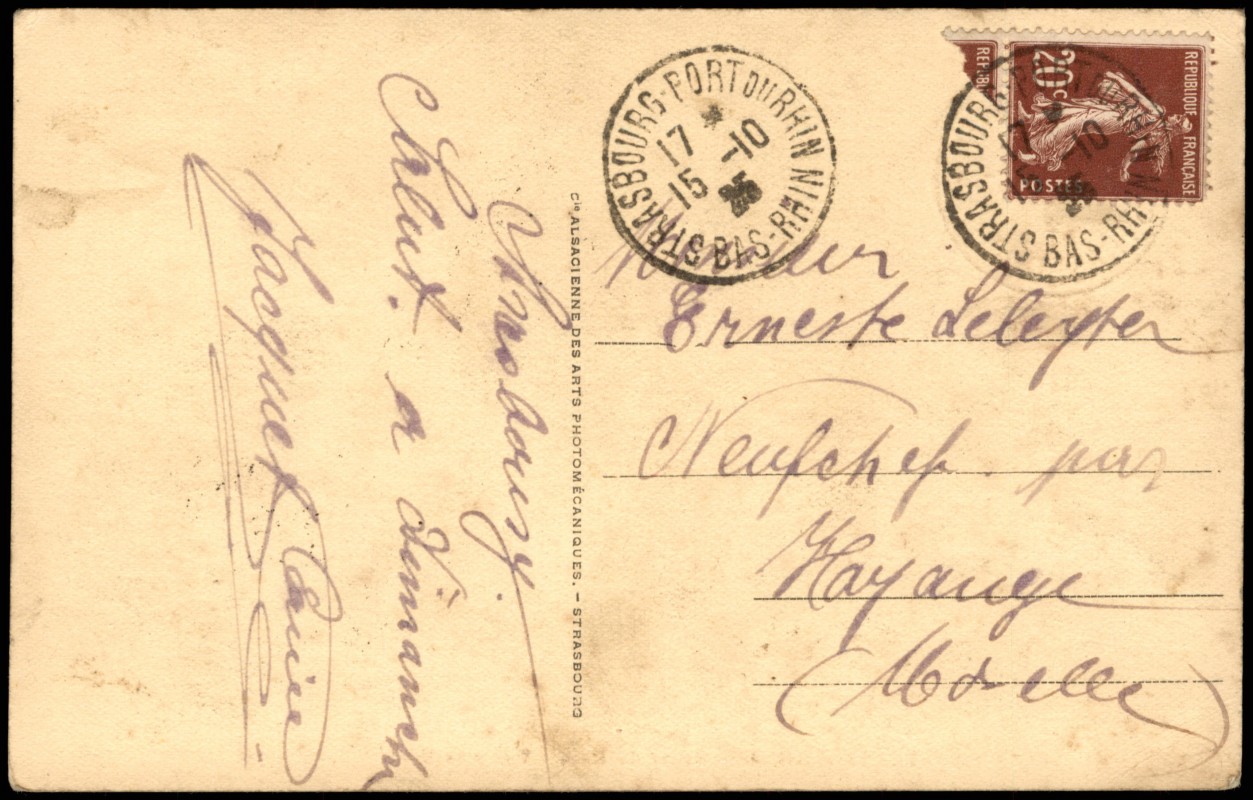 Strasbourg.
Salut. a dimanche
Jacques
Cie ALSACIENNE DES ARTS PHOTOMÉCANIQUES. – STRASBOURG
STRASBOURG-PORT DU RHIN BAS-RHIN
17 -10
15
REPUBLIQUE FRANÇAISE
20c
POSTES
REPUB
STRASBOURG-PORT DU RHIN BAS-RHIN
17 -10
Monsieur
Erneste
Neufchef par
Hayange
(Moselle)